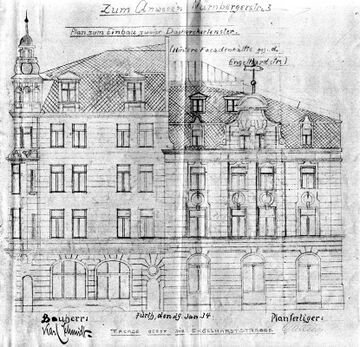 Zum Anwesen Nürnbergerstr. 3
Plan zum Einbau zweier Dacherkerfenster.
(hintere Facadenhälfte geg. d.
Engelhardstr.)
Bauherr:
Karl Schmidt
Fürth, den 29. Jan. 14.
Planfertiger:
FACADE GEGEN DIE ENGELHARDTSTRASSE